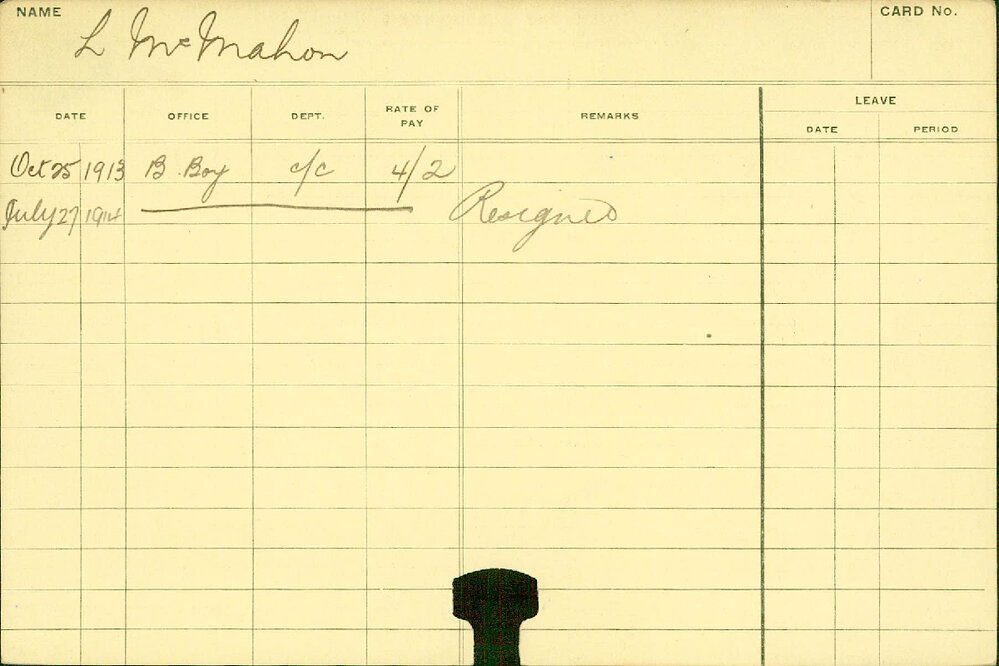 NAME CARD No.
L McMahon
LEAVE
DATE OFFICE DEPT. RATE OF PAY REMARKS DATE PERIOD
Oct 25 1913 B. Boy c/c 4/2
July 27 1914 Resigned